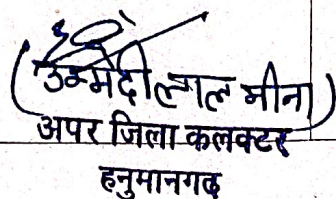 (उम्मेदीलाल मीना)
अपर जिला कलक्टर
हनुमानगढ